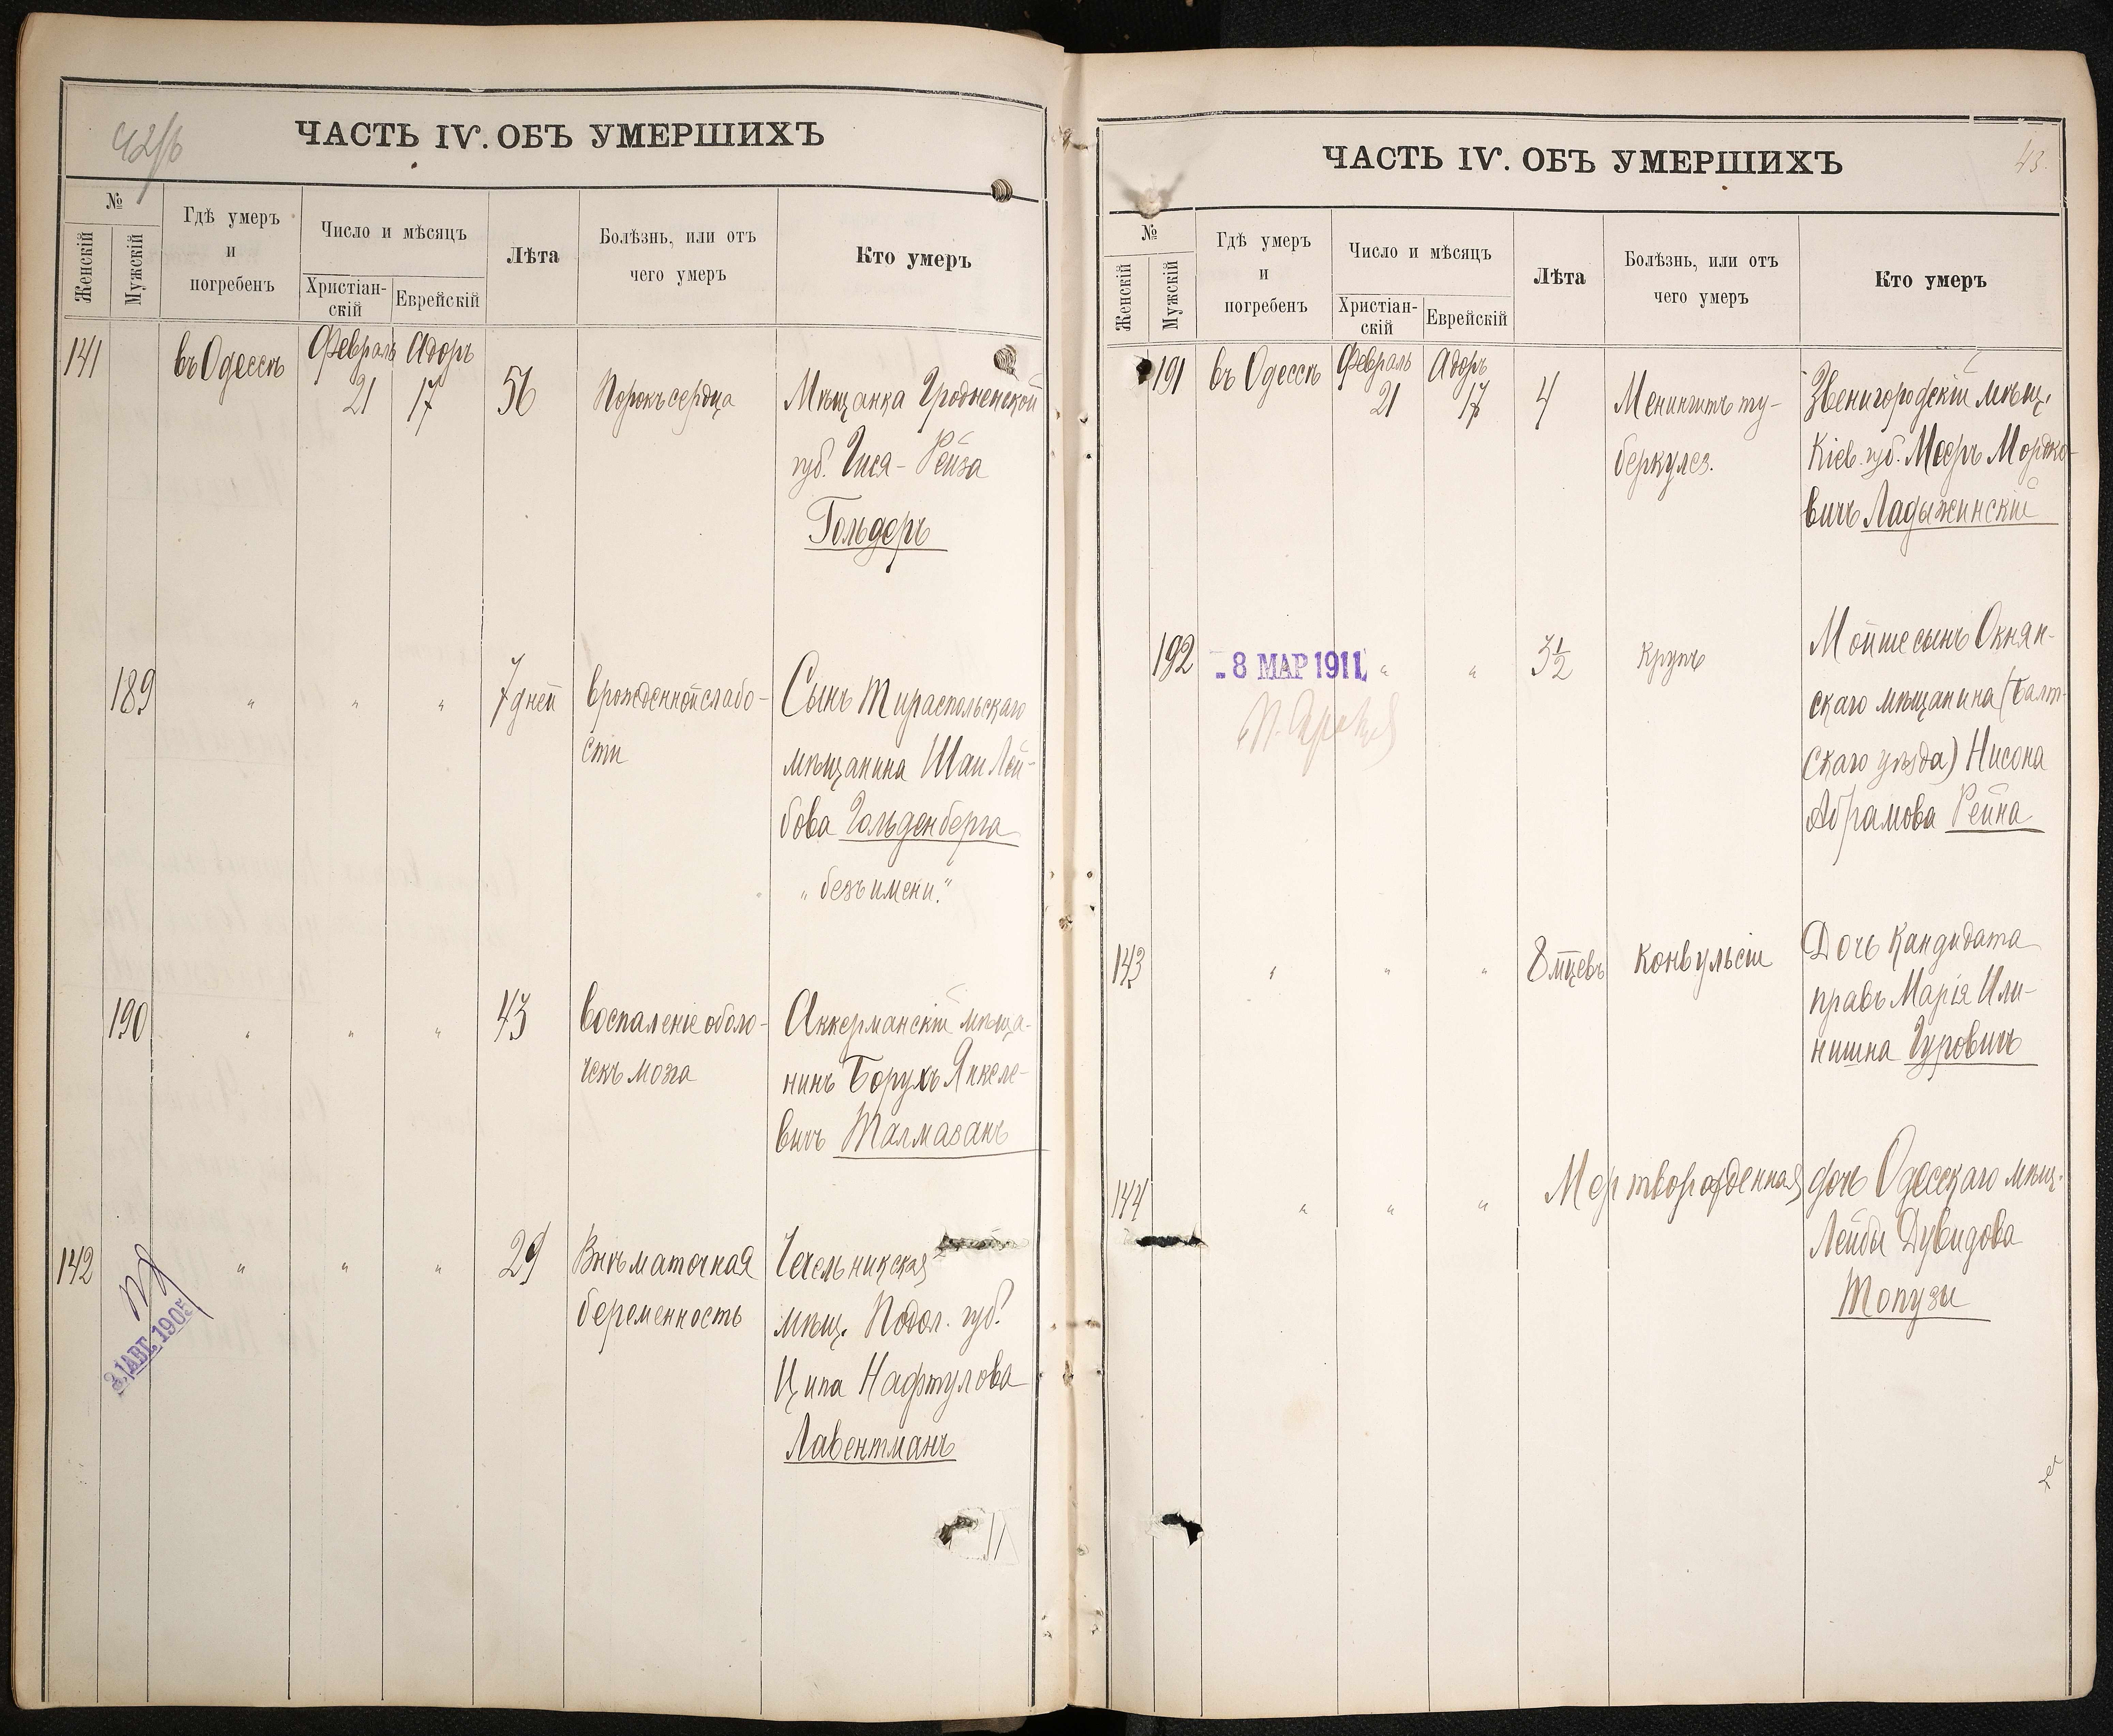 42/b
ЧАСТЬ IV. ОБЪ УМЕРШИХЪ
№
Женскій
Мужскій
Гдѣ умеръ
и
погребенъ
Число и мѣсяцъ
Христіан-
скій
Еврейскій
Лѣта
Болѣзнь, или отъ
чего умеръ
Кто умеръ
141 въ Одессѣ Февраль Адоръ
21 17 56 Порокъ сердца Мѣщанка Гродненской
губ. Гися-Рейза
Гольдеръ
189 " " " 7 дней врожденной слабо- Сынъ Тираспольскаго
сти мѣщанина Шаи Лей-
бова Гольденберга
"безъ имени."
190 " " " 43 Воспаленіе оболо- Аккерманскій мѣща-
чекъ мозга нинъ Борухъ Янкеле-
вичъ Талмазанъ
142 " " " 29 Внѣматочная Чечельникская
беременность мѣщ. Подол. губ.
Ципа Нафтулова
Лавентманъ
21 АВГ. 1905
ЧАСТЬ IV. ОБЪ УМЕРШИХЪ
43.
№
Женскій
Мужскій
Гдѣ умеръ
и
погребенъ
Число и мѣсяцъ
Христіан-
скій
Еврейскій
Лѣта
Болѣзнь, или отъ
чего умеръ
Кто умеръ
191 въ Одессѣ Февраль Адоръ
21 17 4 Менингитъ ту- Звенигородскій мѣщ.
беркулез. Кіев. губ. Мееръ Мордко-
вичъ Ладыжинскій
192 - 8 МАР 1911 " " 3½ Крупъ Мойше сынъ Окнян-
скаго мѣщанина (Балт-
скаго уѣзда) Нисона
Абрамова Рейна
143 " " " 8 мцевъ Конвульсіи Дочь Кандидата
правъ Марія Или-
нишна Гуровичъ
144 " " " Мертворожденная дочь Одесскаго мѣщ.
Лейбы Дувидова
Топузы